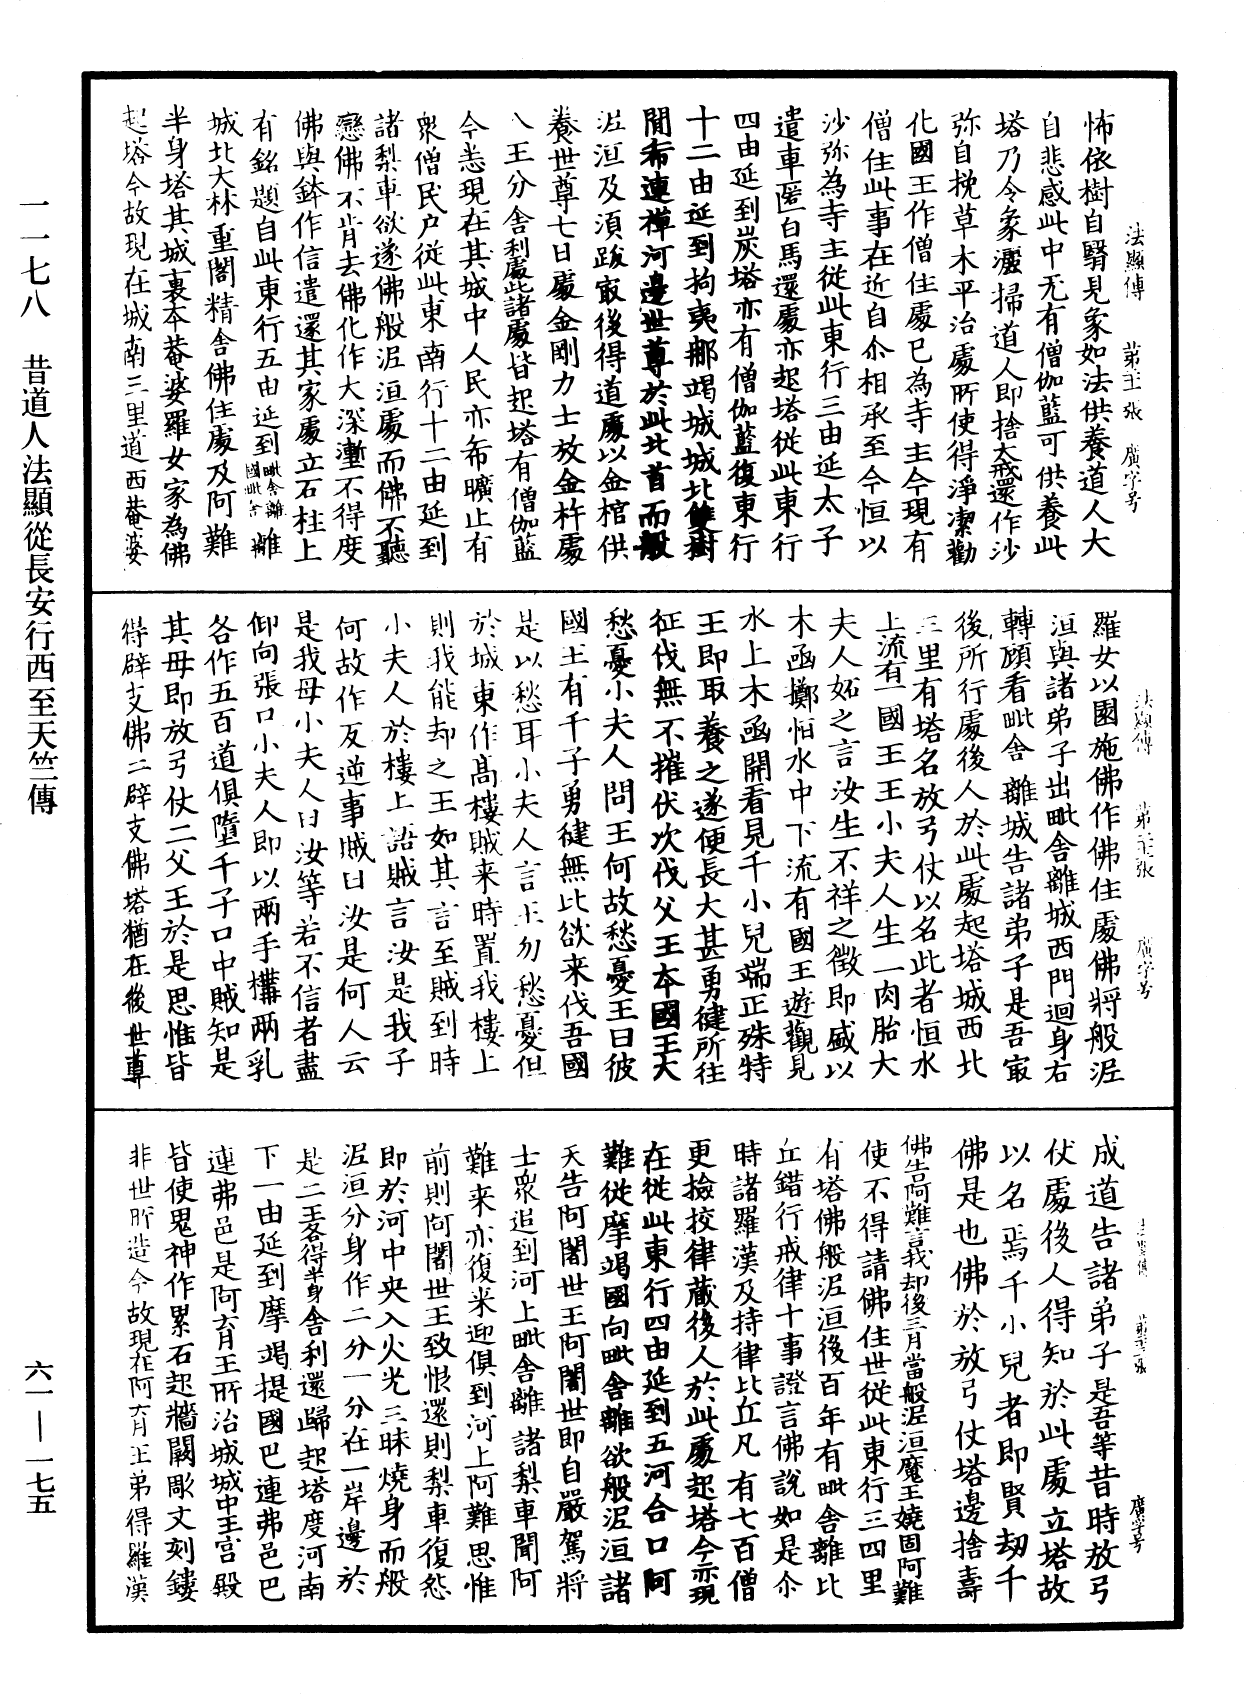 法顯傳　第廿張　廣字号
怖依樹自翳見象如法供養道人大
自悲感此中无有僧伽藍可供養此
塔乃令象灑掃道人即捨大戒還作沙
弥自挽草木平治處所使得淨潔勸
化國王作僧住處已為寺主今現有
僧住此事在近自尒相承至今恒以
沙弥為寺主從此東行三由延太子
遣車匿白馬還處亦起塔從此東行
四由延到炭塔亦有僧伽藍復東行
十二由延到拘夷那竭城城北雙樹
閒希連禪河邊世尊於此北首而般
泥洹及須跋冣後得道處以金棺供
養世尊七日處金剛力士放金杵處
八王分舎利處此諸處皆起塔有僧伽藍
今悉現在其城中人民亦希曠止有
衆僧民户從此東南行十二由延到
諸梨車欲逐佛般泥洹處而佛不聽
戀佛不肯去佛化作大深壍不得度
佛與鉢作信遣還其家處立石柱上
有銘題自此東行五由延到毗舎離國毗舎離
城北大林重閣精舎佛住處及阿難
半身塔其城裏本菴婆羅女家為佛
起塔今故現在城南三里道西菴婆
法顯傳　廣字号
羅女以園施佛作佛住處佛將般泥
洹與諸弟子出毗舎離城西門迴身右
轉顧看毗舎離城告諸弟子是吾冣
後所行處後人於此處起塔城西北
三里有塔名放弓仗以名此者恒水
上流有一國王王小夫人生一肉胎大
夫人妬之言汝生不祥之徵即盛以
木函擲恒水中下流有國王遊觀見
水上木函開看見千小兒端正殊特
王即取養之遂便長大甚勇健所往
征伐無不摧伏次伐父王本國王大
愁憂小夫人問王何故愁憂王曰彼
國王有千子勇健無比欲来伐吾國
是以愁耳小夫人言王勿愁憂但
於城東作高樓賊来時置我樓上
則我能却之王如其言至賊到時
小夫人於樓上語賊言汝是我子
何故作反逆事賊曰汝是何人云
是我母小夫人曰汝等若不信者盡
仰向張口小夫人即以兩手㨶兩乳
各作五百道俱墮千子口中賊知是
其母即放弓仗二父王於是思惟皆
得辟支佛二辟支佛塔猶在後世尊
廣字号
成道告諸弟子是吾等昔時放弓
仗處後人得知於此處立塔故
以名焉千小兒者即賢劫千
佛是也佛於放弓仗塔邊捨壽
佛告阿難言我却後三月當般泥洹魔王嬈固阿難
使不得請佛住世從此東行三四里
有塔佛般泥洹後百年有毗舎離比
丘錯行戒律十事證言佛說如是尒
時諸羅漢及持律比丘凡有七百僧
更撿挍律藏後人於此處起塔今亦現
在從此東行四由延到五河合口阿
難從摩竭國向毗舎離欲般泥洹諸
天告阿闍世王阿闍世即自嚴駕將
士衆追到河上毗舎離諸梨車聞阿
難来亦復来迎俱到河上阿難思惟
前則阿闍世王致恨還則梨車復怨
即於河中央入火光三昧燒身而般
泥洹分身作二分一分在一岸邊於
是二王各得半身舎利還歸起塔度河南
下一由延到摩竭提國巴連弗邑巴
連弗邑是阿育王所治城城中王宫殿
皆使鬼神作累石起牆闕彫文刻鏤
非世所造今故現在阿育王弟得羅漢
一一七八　昔道人法顯從長安行西至天竺傳
六一—一七五